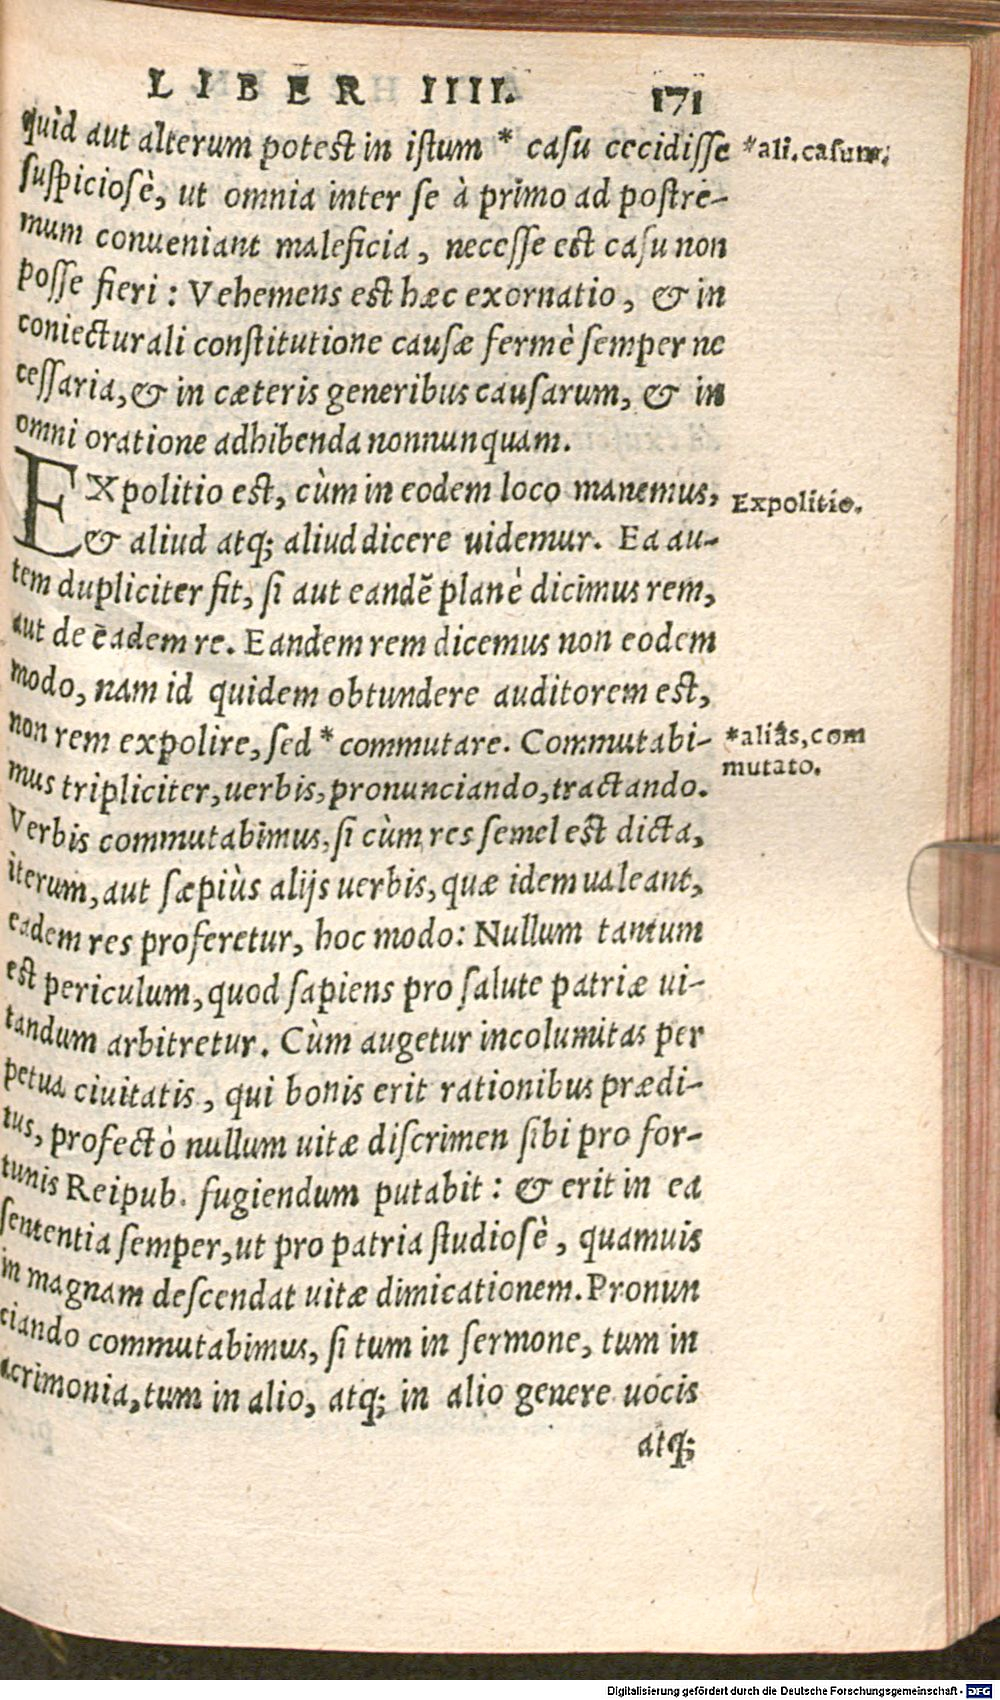 LIBER IIII. 171
quid aut alterum potest in istum * casu cecidisse *ali.casum.
suspiciosè, ut omnia inter se à primo ad postre-
mum conueniant maleficia, necesse est casu non
posse fieri: Vehemens est hæc exornatio, & in
coniecturali constitutione causæ fermè semper ne
cessaria, & in cæteris generibus causarum, & in
omni oratione adhibenda nonnunquam.
EXpolitio est, cùm in eodem loco manemus, Expolitio.
& aliud atq; aliud dicere uidemur. Ea au-
tem dupliciter fit, si aut eandẽ planè dicimus rem,
aut de eadem re. Eandem rem dicemus non eodem
modo, nam id quidem obtundere auditorem est,
non rem expolire, sed * commutare. Commutabi- *aliâs, com
mutato.
mus tripliciter, uerbis, pronunciando, tractando.
Verbis commutabimus, si cùm res semel est dicta,
iterum, aut sæpiùs alijs uerbis, quæ idem ualeant,
eadem res proferetur, hoc modo: Nullum tantum
est periculum, quod sapiens pro salute patriæ ui-
tandum arbitretur. Cùm augetur incolumitas per
petua ciuitatis, qui bonis erit rationibus prædi-
tus, profectò nullum uitæ discrimen sibi pro for-
tunis Reipub. fugiendum putabit: & erit in ea
sententia semper, ut pro patria studiosè, quamuis
in magnam descendat uitæ dimicationem. Pronun
ciando commutabimus, si tum in sermone, tum in
acrimonia, tum in alio, atq; in alio genere uocis
atq;
Digitalisierung gefördert durch die Deutsche Forschungsgemeinschaft - DFG